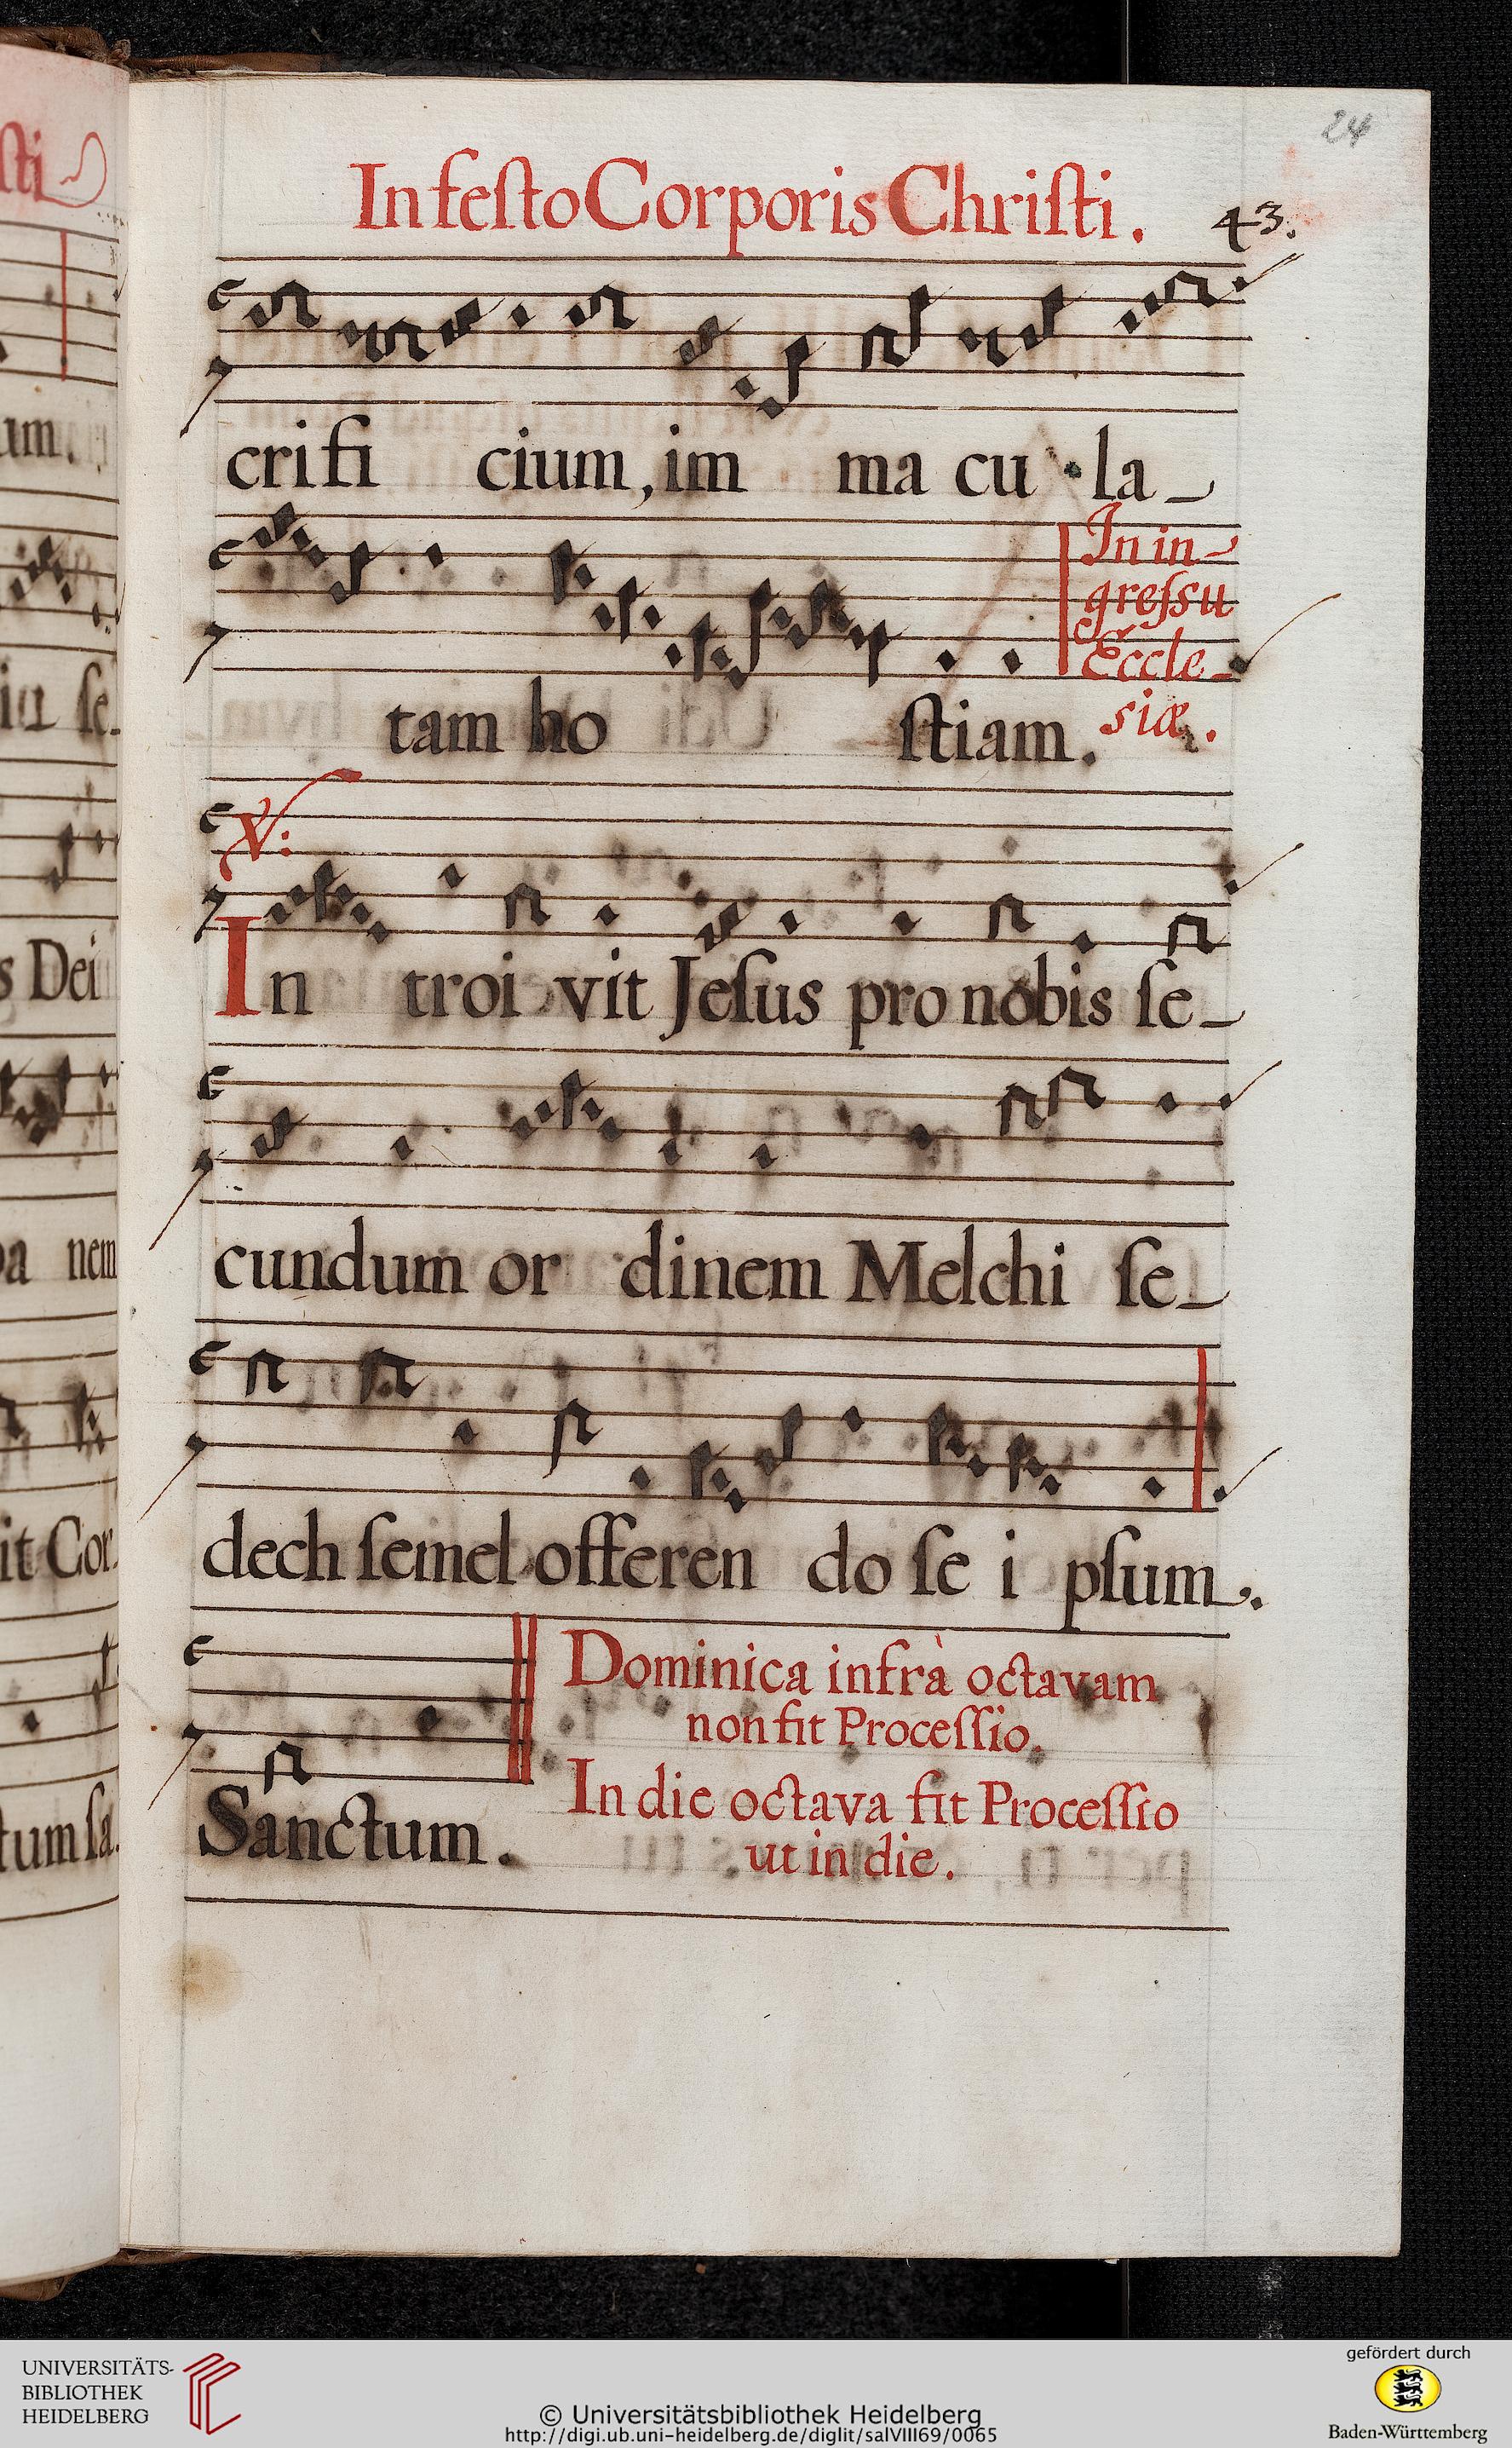 24
In feſto Corporis Chriſti. 43.
crifi cium, im ma cu la_
In in-
greſsu
Eccle_
siæ.
tam ho ſtiam.
℣:
In troi vit Jeſus pro nobis ſe_
cundum or dinem Melchi ſe_
dech ſemel offeren do ſe i pſum.
Dominica infrà octavam
non fit Proceſſio.
In die octava fit Proceſſio
Sanctum.
ut in die.
ſti
um.
ſe_
s Dei
pa nem
it Cor_
tum ſa_
UNIVERSITÄTS-
BIBLIOTHEK
HEIDELBERG
© Universitätsbibliothek Heidelberg
http://digi.ub.uni-heidelberg.de/diglit/salVIII69/0065
gefördert durch
Baden-Württemberg